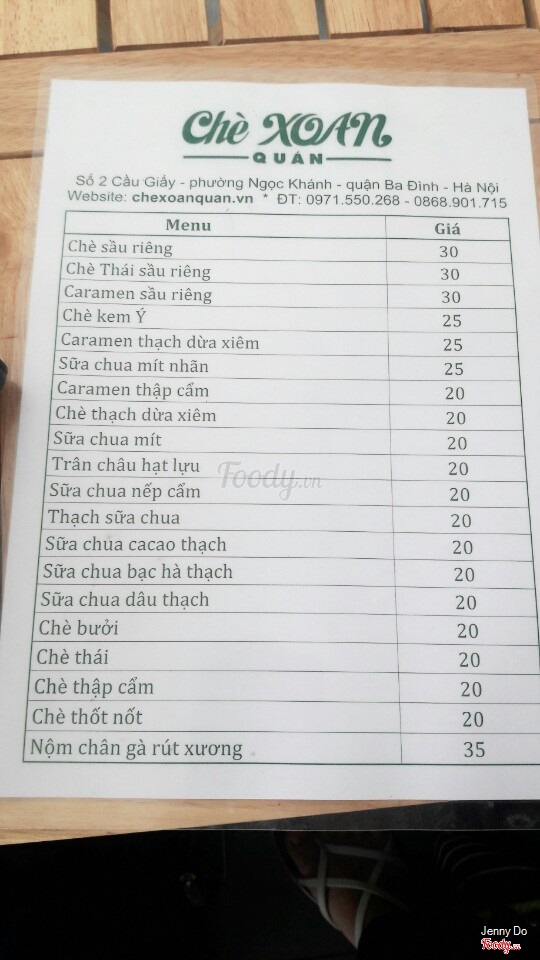 Chè XOAN
QUÁN
Số 2 Cầu Giấy - phường Ngọc Khánh - quận Ba Đình - Hà Nội
Website: chexoanquan.vn * ĐT: 0971.550.268 - 0868.901.715
Menu Giá
Chè sầu riêng 30
Chè Thái sầu riêng 30
Caramen sầu riêng 30
Chè kem Ý 25
Caramen thạch dừa xiêm 25
Sữa chua mít nhãn 25
Caramen thập cẩm 20
Chè thạch dừa xiêm 20
Sữa chua mít 20
Trân châu hạt lựu 20
Foody.vn
Sữa chua nếp cẩm 20
Thạch sữa chua 20
Sữa chua cacao thạch 20
Sữa chua bạc hà thạch 20
Sữa chua dâu thạch 20
Chè bưởi 20
Chè thái 20
Chè thập cẩm 20
Chè thốt nốt 20
Nộm chân gà rút xương 35
Jenny Do
Foody.vn